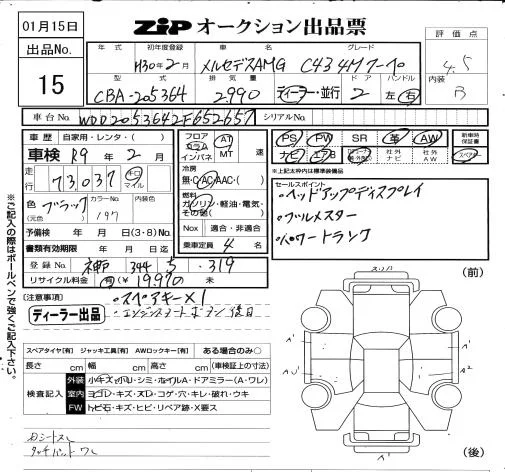 01月15日
ZIP オークション出品票
出品No.
15
評価点
4.5
内装
B
年式 初年度登録 車名 グレード
H30年2月 メルセデスAMG C43 4M クーペ
型式 排気量 ドア ハンドル
CBA-205364 2990 ディーラー・並行 2 左・右
車台No. WDD2053642F652657 シリアルNo.
車歴 自家用・レンタ・( )
車検 R9年2月
走行 73037 キロ マイル
色 ブラック (元色) カラーNo. 197 内装色
予備検 年 月 日(3・8)No.
書類有効期限 年 月 日迄
登録No. 神戸 344 319
リサイクル料金 有(¥ 19,970)
フロア コラム インパネ AT MT 速
冷房 無・C・AC・AAC・( )
燃料 ガソリン・軽油・電気・その他( )
Nox 適合・非適合
乗車定員 4 名
PS PW SR 革 AW 新車時保証書
ナビ エアB 社外ナビ 社外AW スペアキー
*上記太枠内は標準装備品
セールスポイント
・ヘッドアップディスプレイ
・ブルメスター
・パワートランク
(注意事項)
・スペアキー×1
ディーラー出品
スペアタイヤ[有] ジャッキ工具[有] AWロックキー[有] ある場合のみ〇
長さ cm 幅 cm 高さ cm (車検証上の寸法)
検査記入
外装 小キズ・小凹・シミ・ホイルA・ドアミラー(A・ワレ)
室内 ヨゴレ・キズ・スレ・コゲ・穴・キレ・破れ・ウキ
FW トビ石・キズ・ヒビ・リペア跡・X要ス
タッチパット ワレ
※ご記入の際はボールペンで強くご記入下さい。
(前)
A2
(後)